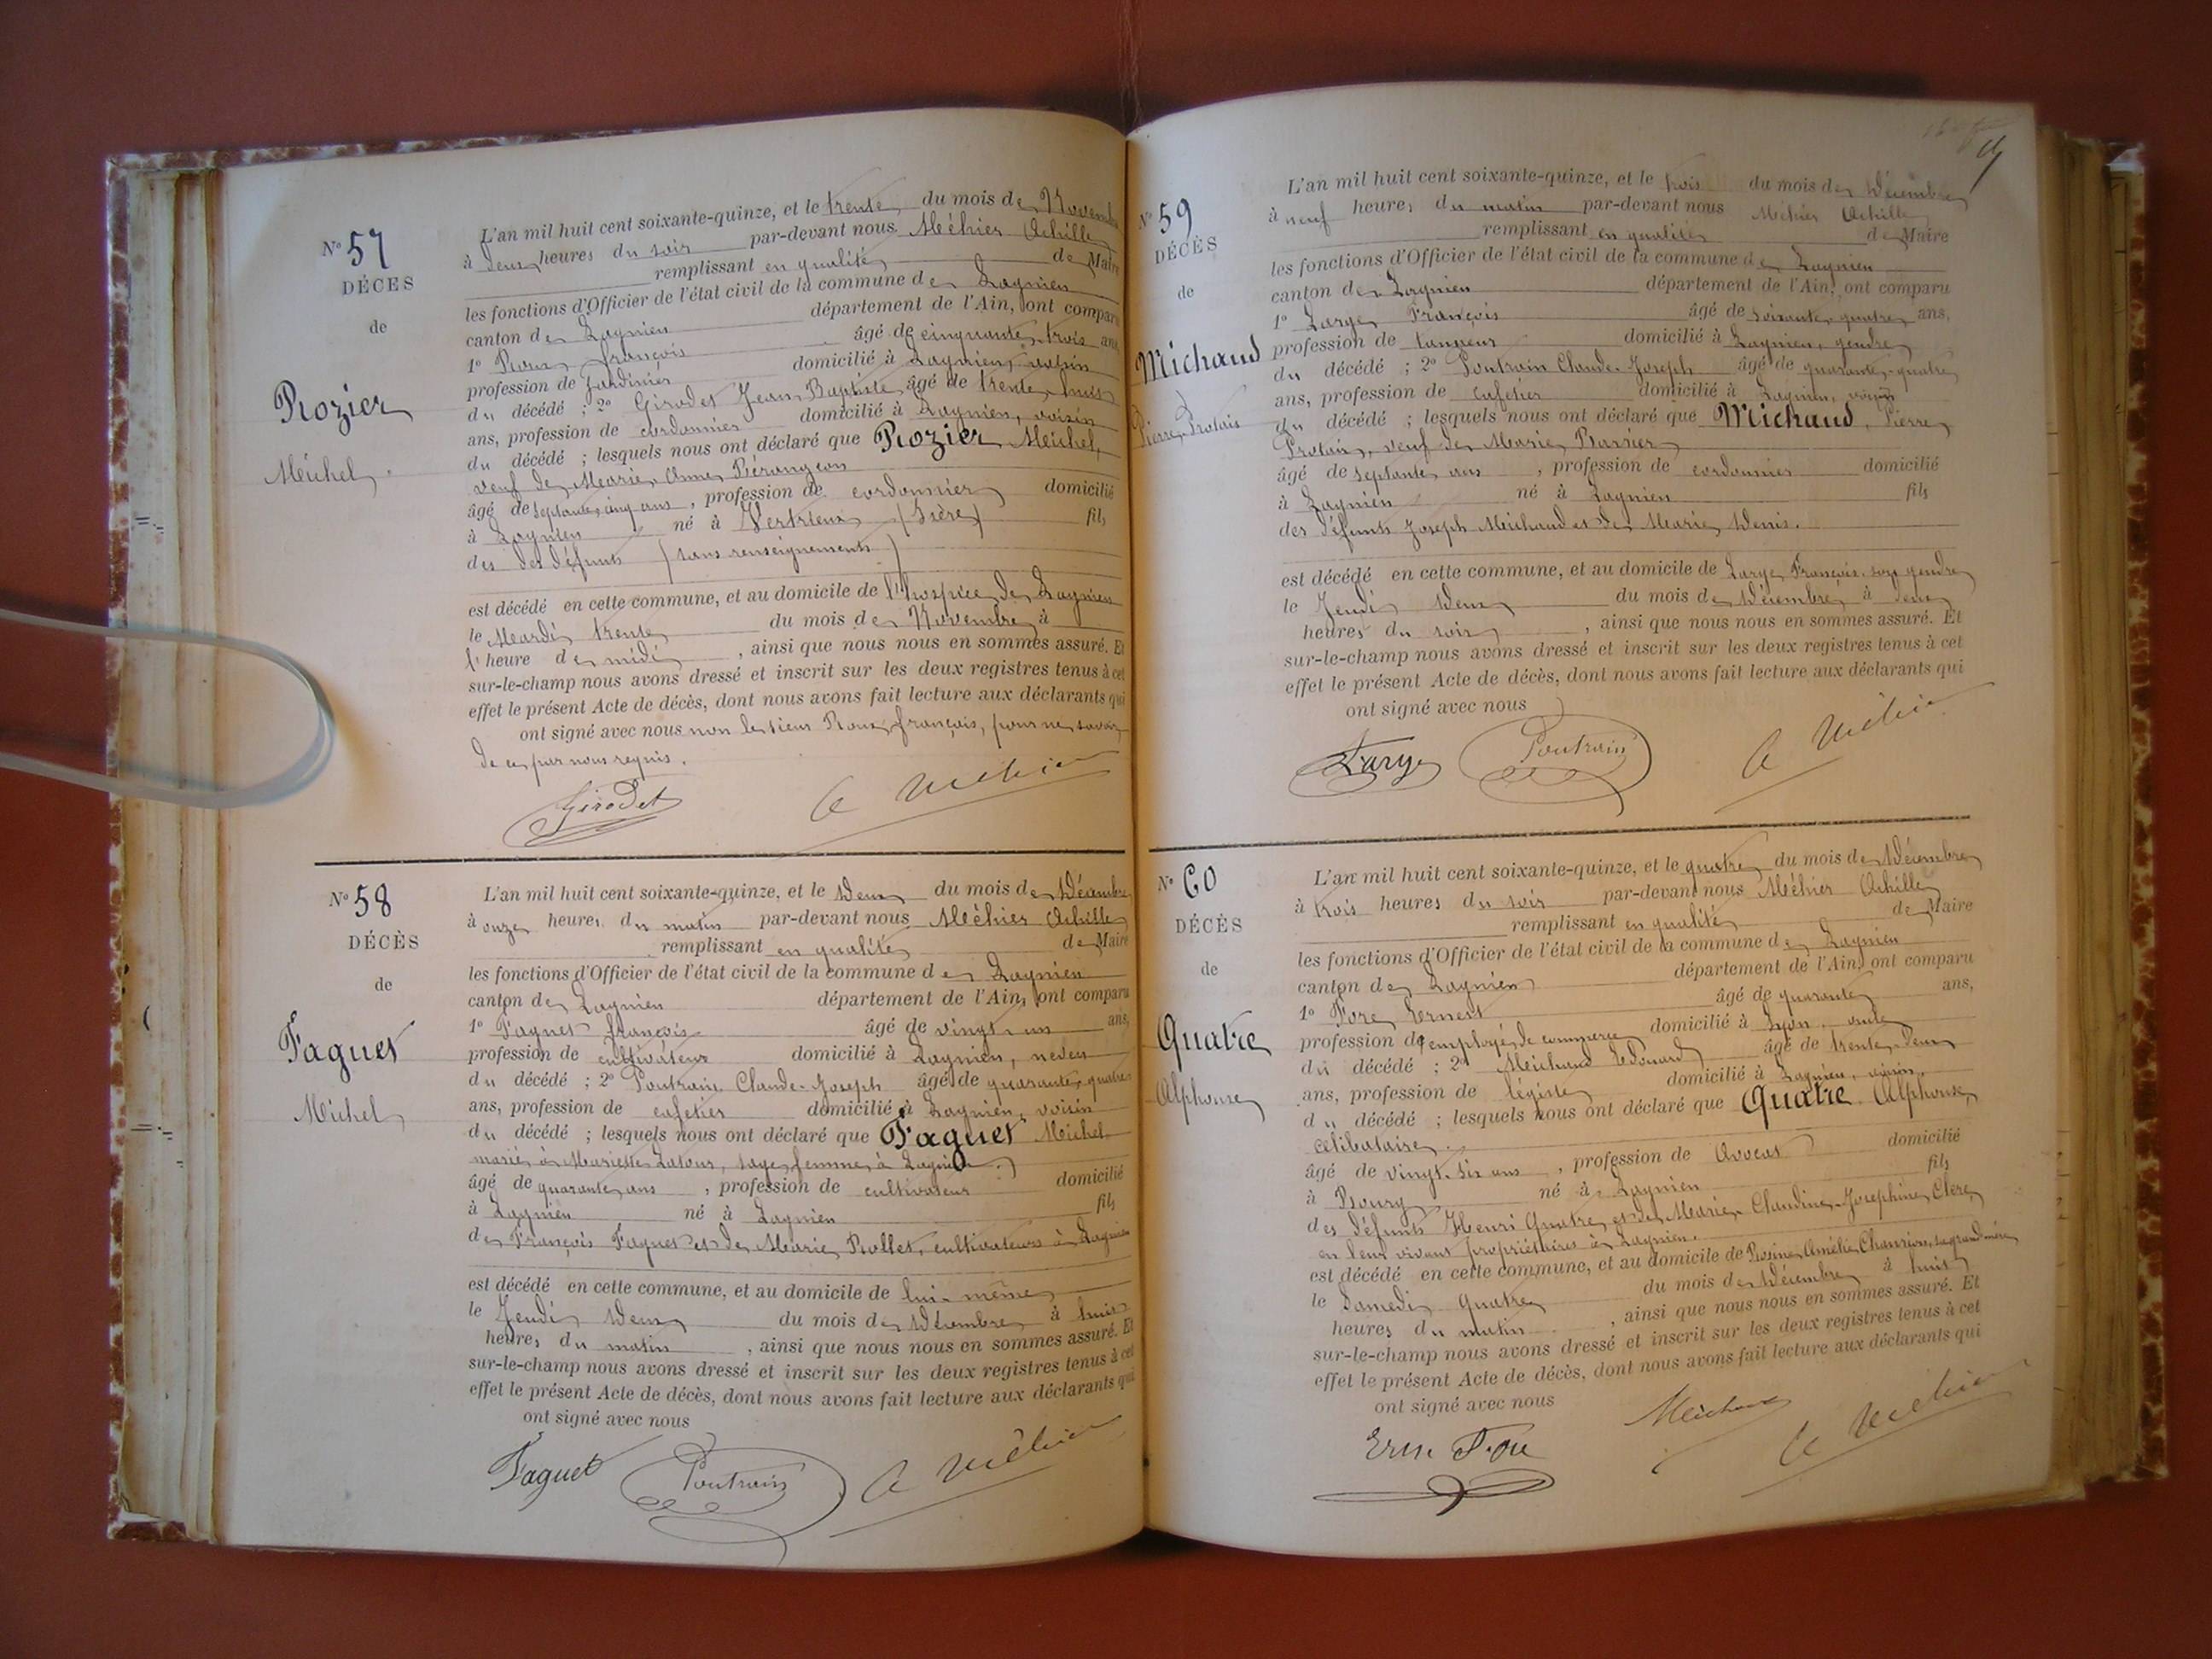 N° 57
DÉCÈS
de
Rozier
Michel
L'an mil huit cent soixante-quinze, et le trente du mois de Novembre
à deux heures du soir par-devant nous Méhier Achille
remplissant en qualité de Maire
les fonctions d'Officier de l'état civil de la commune de Lagnieu
canton de Lagnieu département de l'Ain, ont comparu
1° Roux françois âgé de cinquante trois ans
profession de Jardinier domicilié à Lagnieu, voisin
du décédé ; 2° Girodet Jean Baptiste âgé de trente huit
ans, profession de cordonnier domicilié à Lagnieu, voisin
du décédé ; lesquels nous ont déclaré que Rozier Michel,
veuf de Marie Anne
âgé de septante cinq ans, profession de cordonnier domicilié
à Lagnieu né à Vertrieux (Isère) fils
des des défunts (sans renseignements)
est décédé en cette commune, et au domicile de l'hospice de Lagnieu
le Mardi trente du mois de Novembre à
l'heure de midi, ainsi que nous nous en sommes assuré. Et
sur-le-champ nous avons dressé et inscrit sur les deux registres tenus à cet
effet le présent Acte de décès, dont nous avons fait lecture aux déclarants qui
ont signé avec nous non le sieur Roux françois, pour ne savoir
de ce par nous requis.
Girodet A Méhier
N° 58
DÉCÈS
de
Faguet
Michel
L'an mil huit cent soixante-quinze, et le Deux du mois de Décembre
à onze heures du matin par-devant nous Méhier Achille
remplissant en qualité de Maire
les fonctions d'Officier de l'état civil de la commune de Lagnieu
canton de Lagnieu département de l'Ain, ont comparu
1° Faguet françois âgé de vingt un ans,
profession de cultivateur domicilié à Lagnieu, neveu
du décédé ; 2° Poutrain Claude-Joseph âgé de quarante quatre
ans, profession de cafetier domicilié à Lagnieu, voisin
du décédé ; lesquels nous ont déclaré que Faguet Michel
marié à Mariette Latour, sage femme à Lagnieu
âgé de quarante ans, profession de cultivateur domicilié
à Lagnieu né à Lagnieu fils
de François Faguet et de Marie Rollet, cultivateurs à Lagnieu
est décédé en cette commune, et au domicile de lui-même
le Jeudi Deux du mois de Décembre à huit
heures du matin, ainsi que nous nous en sommes assuré. Et
sur-le-champ nous avons dressé et inscrit sur les deux registres tenus à cet
effet le présent Acte de décès, dont nous avons fait lecture aux déclarants qui
ont signé avec nous
Faguet Poutrain A Méhier
N° 59
DÉCÈS
de
Michaud
Pierre Protais
L'an mil huit cent soixante-quinze, et le trois du mois de Décembre
à neuf heures du matin par-devant nous Méhier Achille
remplissant en qualité de Maire
les fonctions d'Officier de l'état civil de la commune de Lagnieu
canton de Lagnieu département de l'Ain, ont comparu
1° Large François âgé de soixante quatre ans,
profession de tanneur domicilié à Lagnieu, gendre
du décédé ; 2° Poutrain Claude-Joseph âgé de quarante-quatre
ans, profession de cafetier domicilié à Lagnieu, voisin
du décédé ; lesquels nous ont déclaré que Michaud, Pierre
Protais, veuf de Marie
âgé de septante ans, profession de cordonnier domicilié
à Lagnieu né à Lagnieu fils
des défunts Joseph Michaud et de Marie Denis.
est décédé en cette commune, et au domicile de Large François, son gendre
le Jeudi Deux du mois de Décembre à deux
heures du soir, ainsi que nous nous en sommes assuré. Et
sur-le-champ nous avons dressé et inscrit sur les deux registres tenus à cet
effet le présent Acte de décès, dont nous avons fait lecture aux déclarants qui
ont signé avec nous
Large Poutrain A Méhier
N° 60
DÉCÈS
de
Quatre
Alphonse
L'an mil huit cent soixante-quinze, et le quatre du mois de Décembre
à trois heures du soir par-devant nous Méhier Achille
remplissant en qualité de Maire
les fonctions d'Officier de l'état civil de la commune de Lagnieu
canton de Lagnieu département de l'Ain, ont comparu
1° Fore Ernest âgé de quarante ans,
profession d'employé de commerce domicilié à Lyon, oncle
du décédé ; 2° Michaud Edouard âgé de trente-deux
ans, profession de légiste domicilié à Lagnieu, voisin,
du décédé ; lesquels nous ont déclaré que Quatre Alphonse,
célibataire.
âgé de vingt-six ans, profession de Avocat domicilié
à Bourg né à Lagnieu fils
des défunts Henri Quatre et de Marie-Claudine-Josephine Clerc,
en leur vivant propriétaires à Lagnieu.
est décédé en cette commune, et au domicile de Rosine Amélie Chanrion, sa grand'mère
le Samedi quatre du mois de Décembre à huit
heures du matin, ainsi que nous nous en sommes assuré. Et
sur-le-champ nous avons dressé et inscrit sur les deux registres tenus à cet
effet le présent Acte de décès, dont nous avons fait lecture aux déclarants qui
ont signé avec nous
Ern. Fore Michaud A Méhier